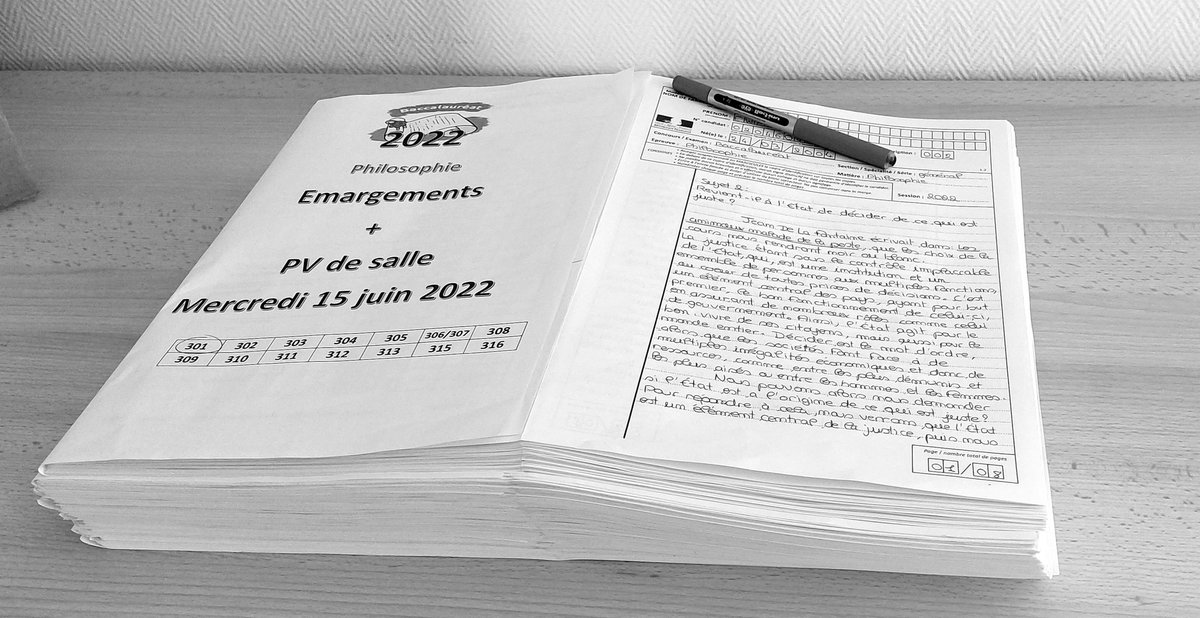 Baccalauréat
2022
Philosophie
Emargements
+
PV de salle
Mercredi 15 juin 2022
301 302 303 304 305 306/307 308
309 310 311 312 313 315 316
PRÉNOM :
N° candidat :
Né(e) le : 24/03/2004
002
Concours / Examen : Baccalauréat
Section / Spécialité / Série : général
Epreuve : Philosophie
Matière : Philosophie
Session : 2022
Sujet 2 :
Revient-il à l'État de décider de ce qui est
juste ?
Jean De La Fontaine écrivait dans Les
animaux malade de la peste, que les choix de la
cours nous rendront noir ou blanc.
La justice étant sous le contrôle implaccable
de l'État, qui, est une institution et un
ensemble de personnes aux multiples fonctions,
au coeur de toutes prises de décisions. C'est
un élément central des pays, ayant pour but
premier, le bon fonctionnement de celui-ci,
en assurant de nombreux rôles comme celui
de gouvernement. Ainsi, l'État agit pour le
bon vivre de ses citoyens, mais aussi pour le
monde entier. Décider est le mot d'ordre,
alors que les sociétés font face à de
multiples inégalités économiques et donc de
ressources, comme entre les plus démunis et
les plus aisés ou entre les hommes et les femmes.
Nous pouvons alors nous demander
si l'État est à l'origine de ce qui est juste ?
Pour répondre à cela, nous verrons, que l'État
est un élément central de la justice, puis nous
Page / nombre total de pages
01/08